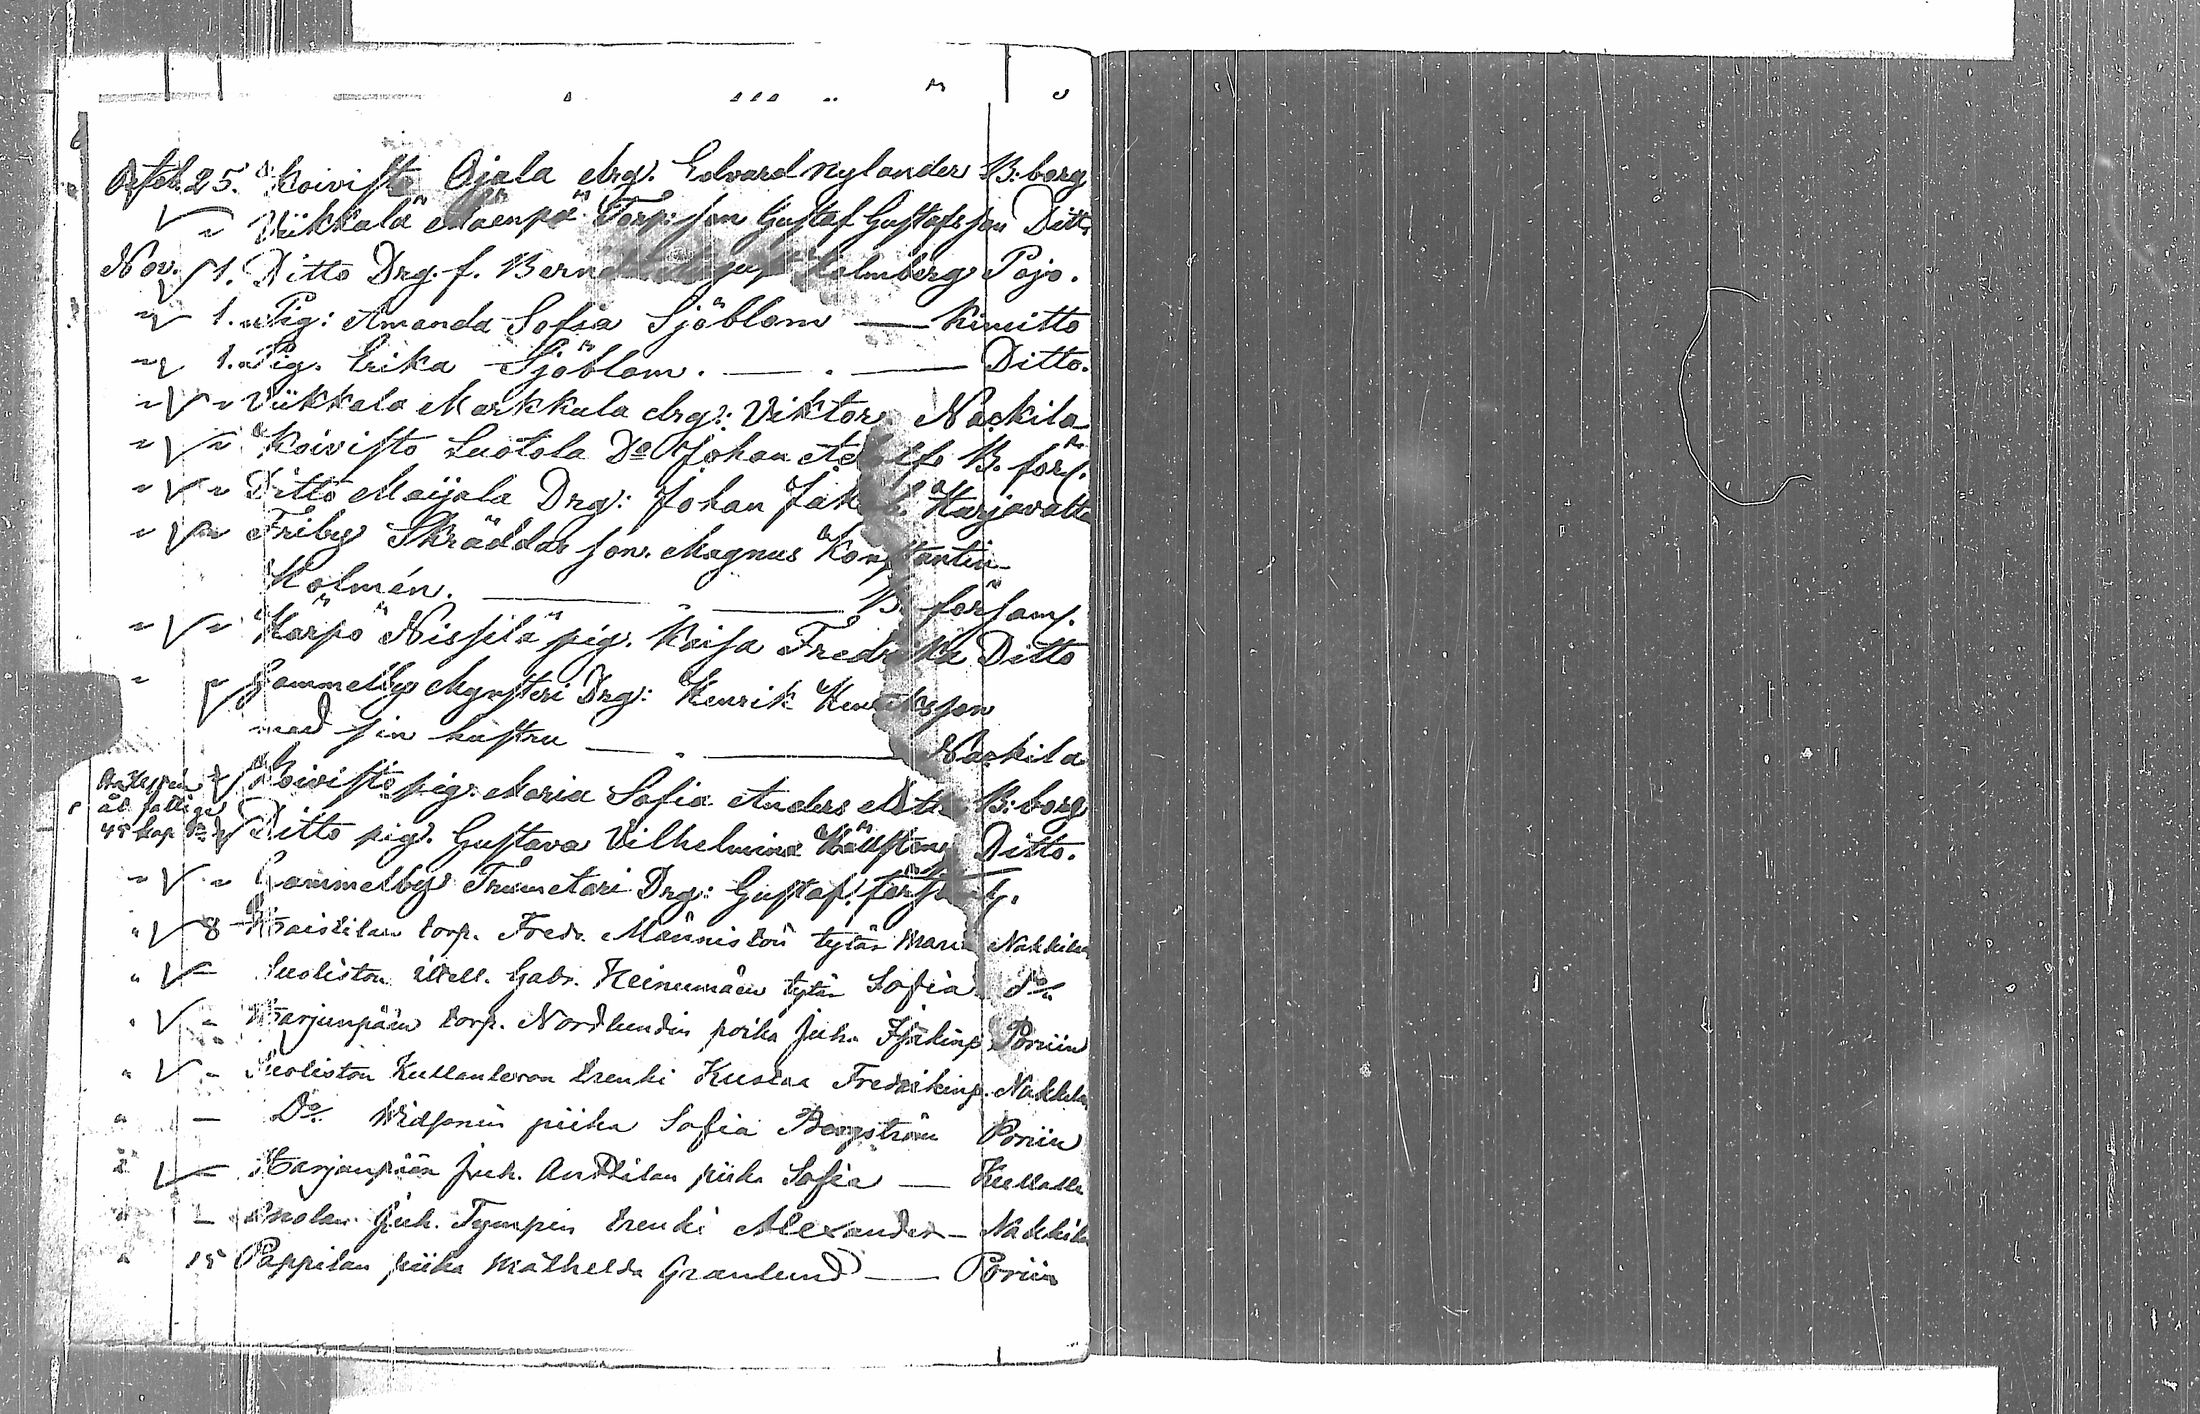 Octob. 25. Koivisto Ojala drg. Edvard Nylander B:borg
" Viikkala Mäenpä Torp: son Gustaf Gustafsson Ditto
Nov. 1. Ditto Drg. f. Holmberg Pojo.
" 1. Pig: Amanda Sofia Sjöblom — Kimitto
" 1. Pig. Erika Sjöblom. — . — Ditto.
" " Viikkala Markkula drg: Viktor Nackila
" " Koivisto Luotola Do Johan B. förs.
" " Ditto Maijala Drg: Johan Harjavalta
" " Friby Skräddar son. Magnus Konstantin
Holmén. — " — B. församl.
" " Harpö Nissilä pig. Kaisa Fredrika Ditto
" " Gammelby Mynsteri Drg: Henrik Henriksson
med sin hustru — . — Nackila
Koivisto pig. Maria Sofia Anders B:borg
45 kop Ditto pig. Gustava Vilhelmina Ditto.
" " Gammelby Trumetari Drg: Gustaf
" 8 torp. Fredr. Männistön tytär Maria Nakkilan
" — Suoliston itsell. Gabr. Heinumäen tytär Sofia Do
" " Harjunpään torp. Nordlundin poika Juha Poriin
" " Suoliston Kullanteron trenki Kustaa Fredrikinp. Nakkilan
" — Do piika Sofia Bergström Poriin
" — Harjunpään Juh. Anttilan piika Sofia — Kullalle
" — Juh. Tympin trenki Alexander — Nakkila
" 15 Pappilan piika Mathelda Granlund — Poriin